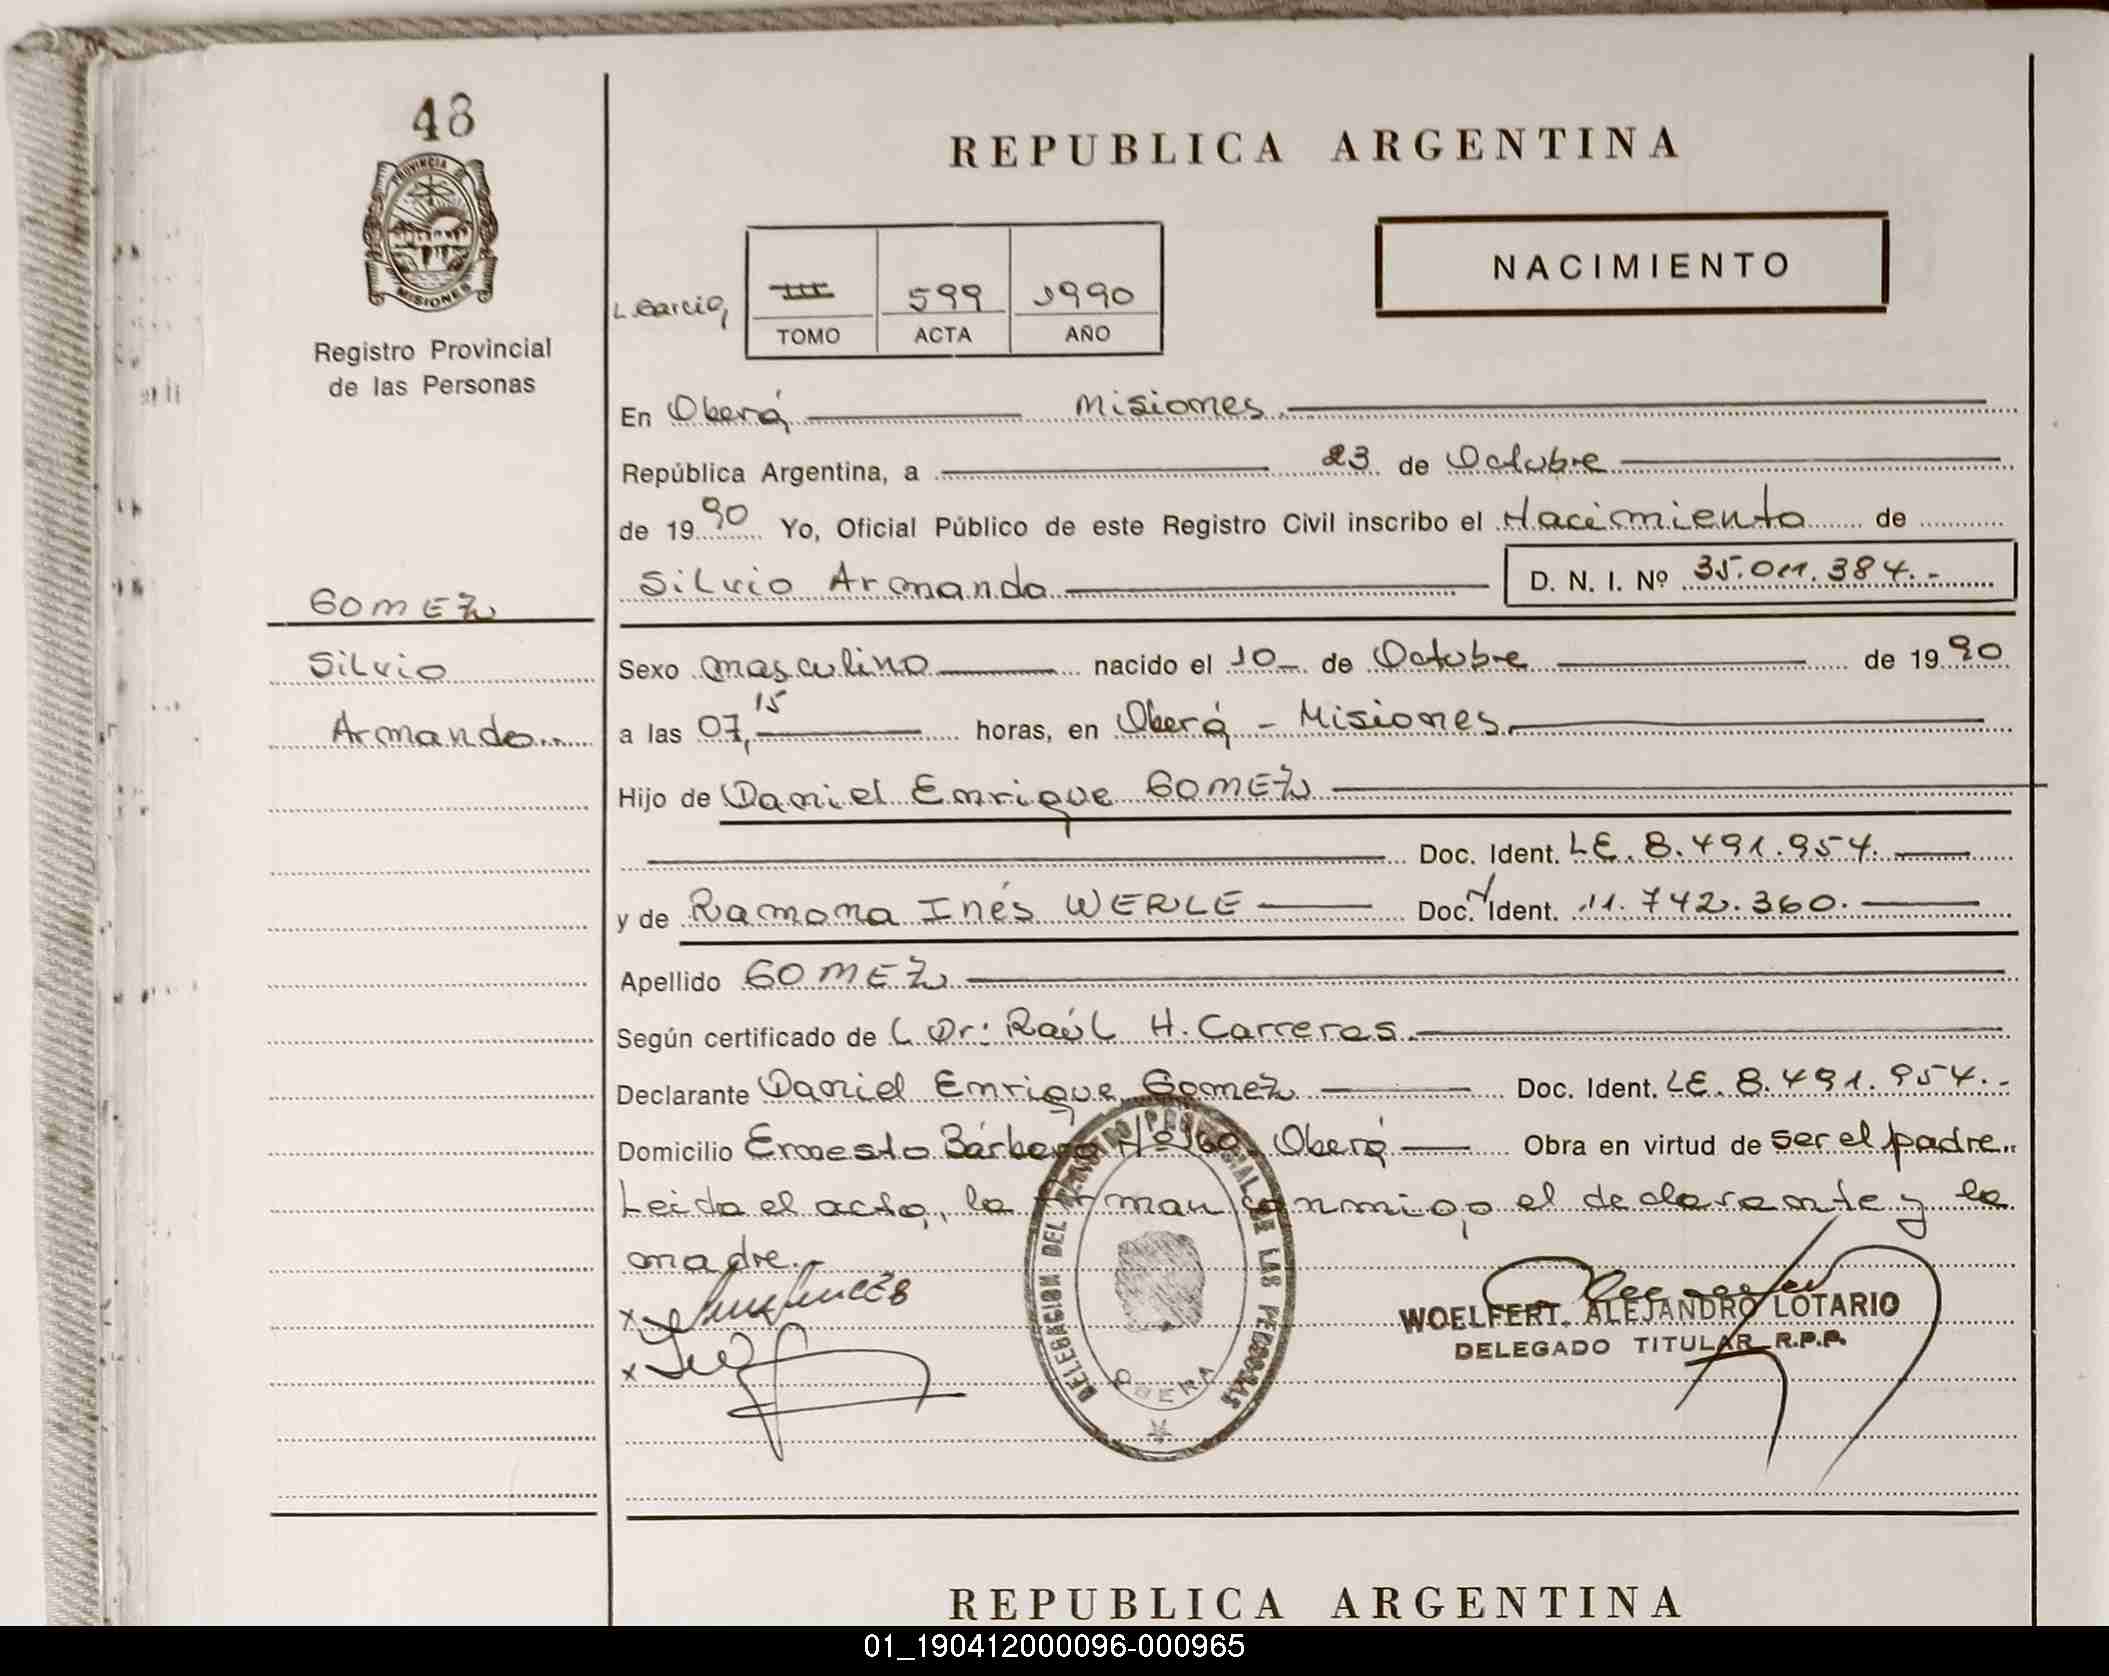 48
PROVINCIA DE
MISIONES
Registro Provincial
de las Personas
GOMEZ
Silvio
Armando
REPUBLICA ARGENTINA
L. Garcia
III 599 1990
TOMO ACTA AÑO
NACIMIENTO
En Oberá, Misiones.
República Argentina, a 23 de Octubre
de 1990 Yo, Oficial Público de este Registro Civil inscribo el Nacimiento de
Silvio Armando D. N. I. Nº 35.011.384.-
Sexo masculino nacido el 10 de Octubre de 1990
a las 07,15 horas, en Oberá - Misiones.
Hijo de Daniel Enrique GOMEZ
Doc. Ident. LE. 8.491.954.
y de Ramona Inés WERLE Doc. Ident. 11.742.360.
Apellido GOMEZ
Según certificado de l Dr: Raúl H. Carreras.
Declarante Daniel Enrique Gomez Doc. Ident. LE. 8.491.954.-
Domicilio Ernesto Bárbero Oberá Obra en virtud de ser el padre.
Leida el acta, la firman conmigo, el declarante y la
madre.-
DELEGACION DEL REGISTRO PROVINCIAL DE LAS PERSONAS
OBERA
WOELFERT. ALEJANDRO LOTARIO
DELEGADO TITULAR R.P.P.
REPUBLICA ARGENTINA
01_190412000096-000965